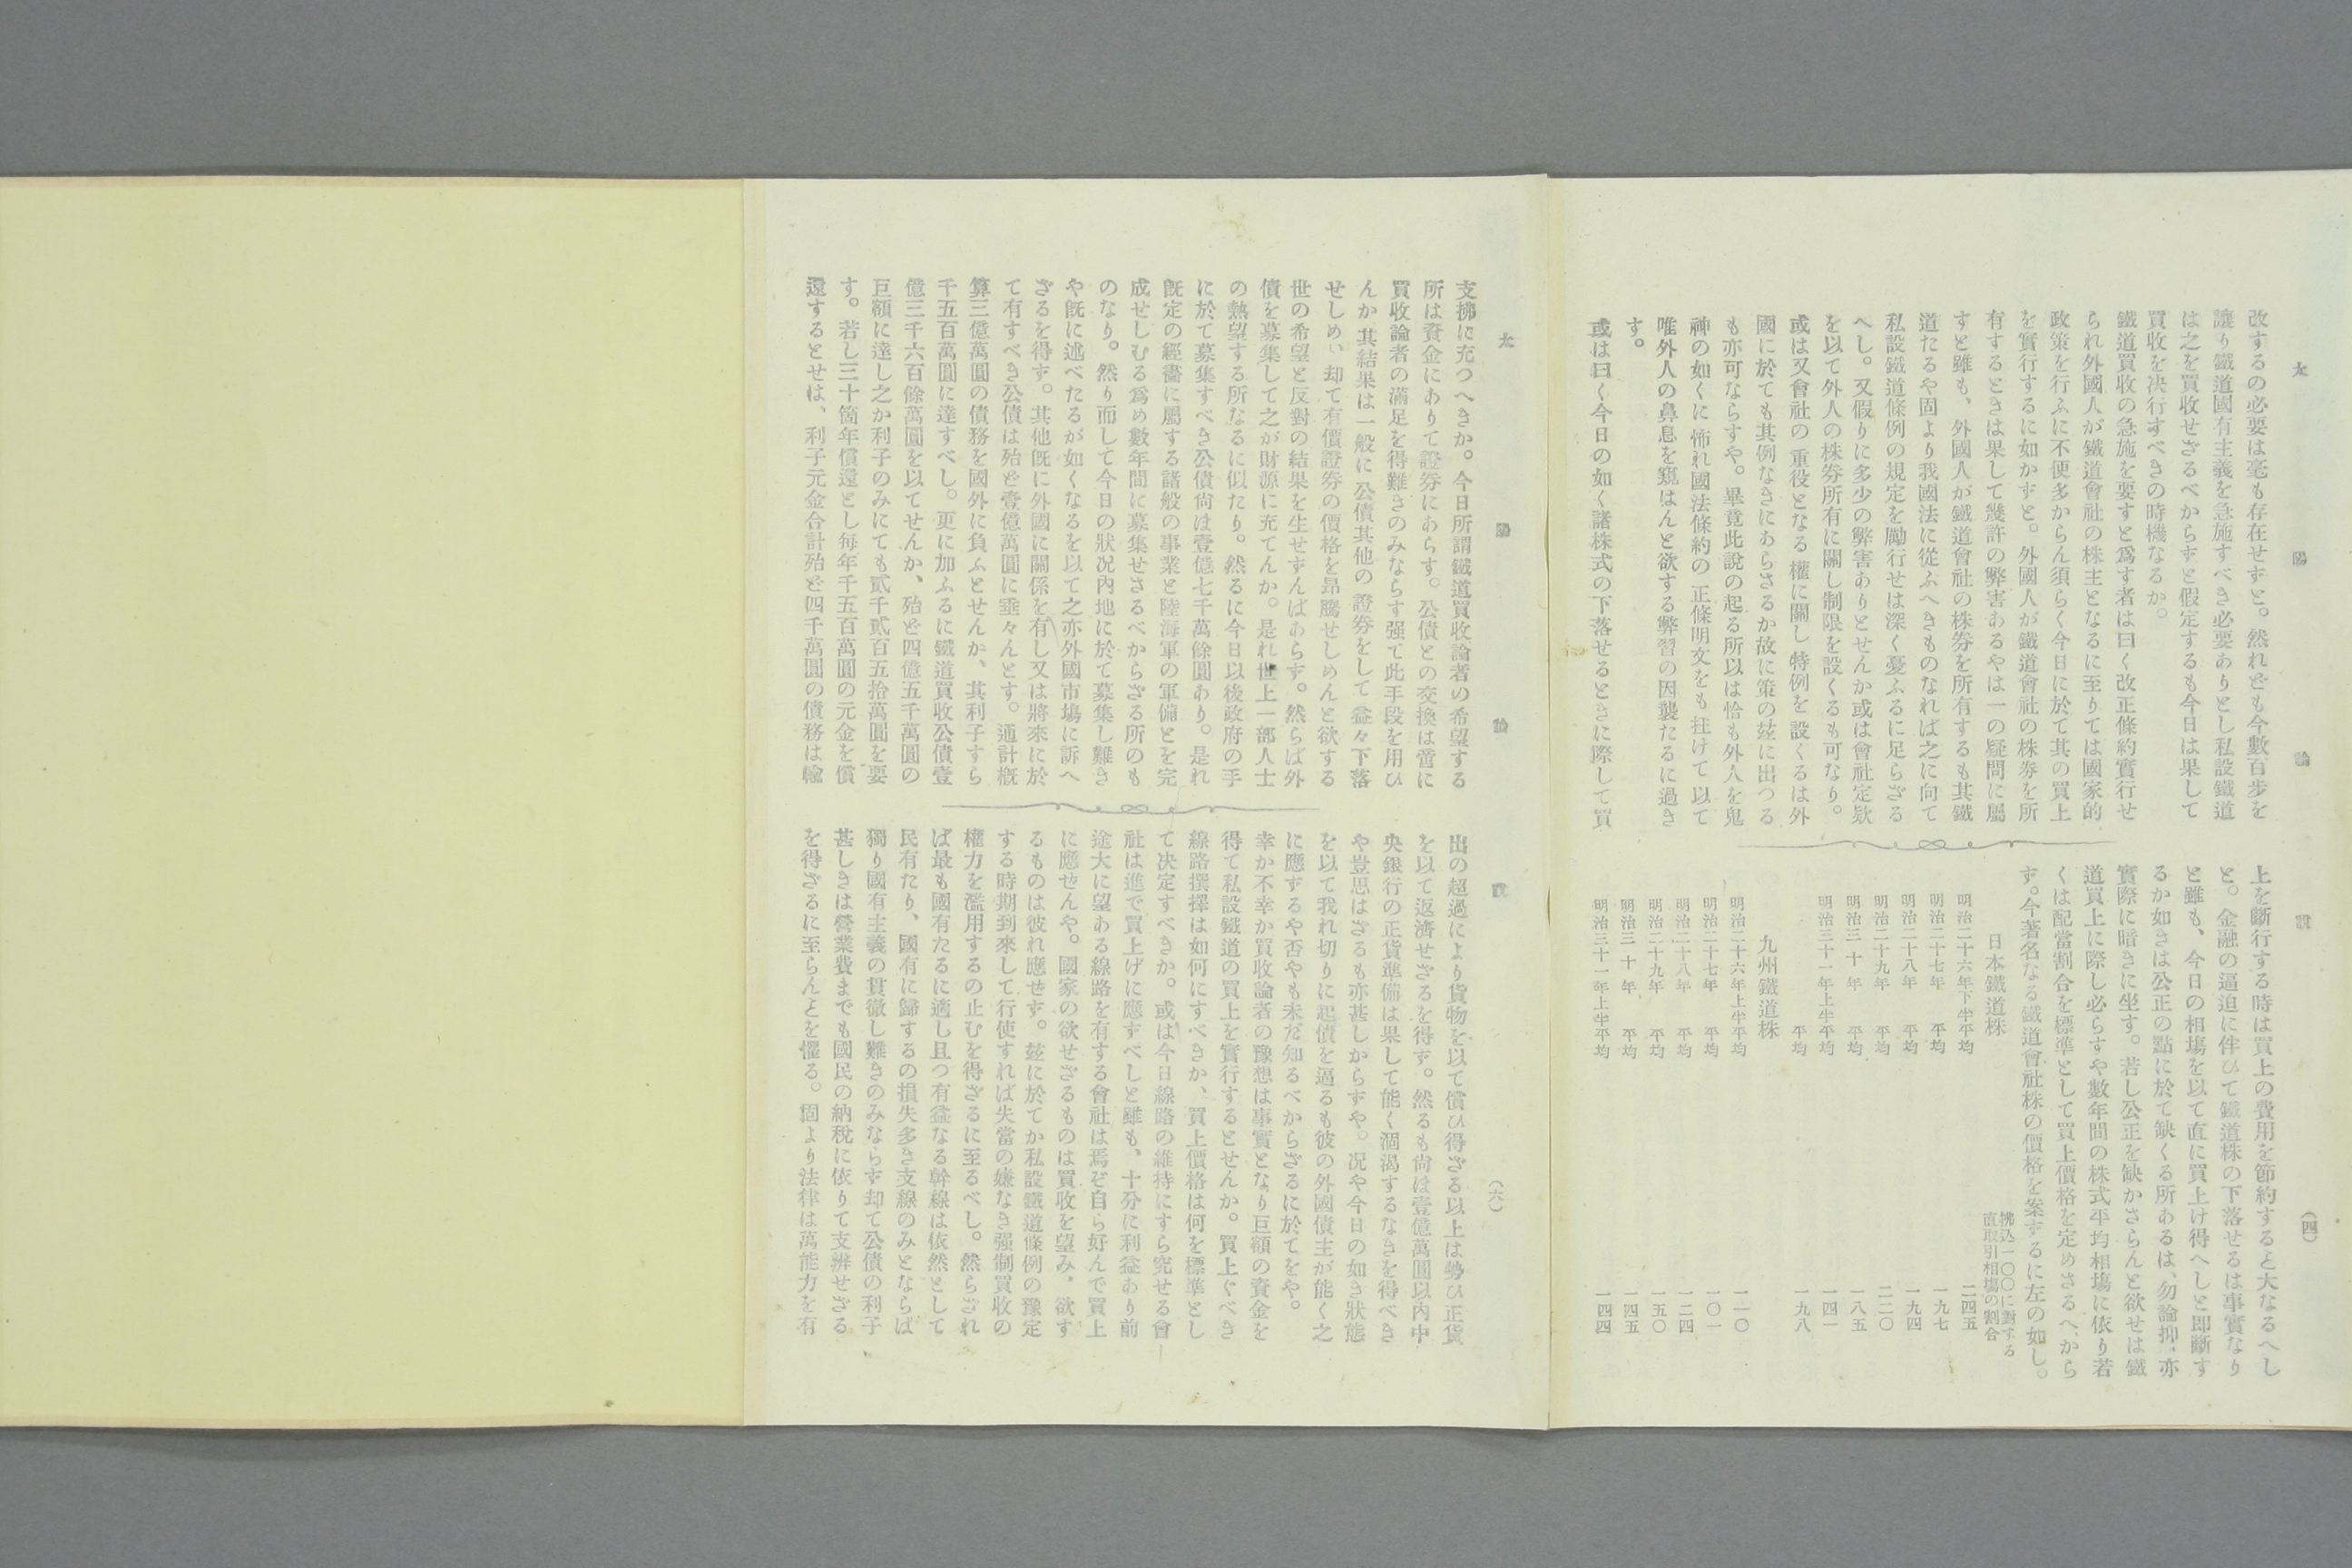 太陽　論說　（四）
改するの必要は毫も存在せすと。然れども今數百步を
讓り鐵道國有主義を急施すべき必要ありとし私設鐵道
は之を買收せざるべからすと假定するも今日は果して
買收を決行すべきの時機なるか。
鐵道買收の急施を要すと爲す者は曰く改正條約實行せ
られ外國人が鐵道會社の株主となるに至りては國家的
政策を行ふに不便多からん須らく今日に於て其の買上
を實行するに如かずと。外國人が鐵道會社の株券を所
有するときは果して幾許の弊害あるやは一の疑問に屬
すと雖も、外國人が鐵道會社の株券を所有するも其鐵
道たるや固より我國法に從ふへきものなれば之に向て
私設鐵道條例の規定を勵行せは深く憂ふるに足らざる
へし。又假りに多少の弊害ありとせんか或は會社定欵
を以て外人の株券所有に關し制限を設くるも可なり。
或は又會社の重役となる權に關し特例を設くるは外
國に於ても其例なきにあらさるか故に策の玆に出つる
も亦可ならすや。畢竟此說の起る所以は恰も外人を鬼
神の如くに怖れ國法條約の正條明文をも拄けて以て
唯外人の鼻息を窺はんと欲する弊習の因襲たるに過き
す。
或は曰く今日の如く諸株式の下落せるときに際して買
上を斷行する時は買上の費用を節約すると大なるへし
と。金融の逼迫に伴ひて鐵道株の下落せるは事實なり
と雖も、今日の相塲を以て直に買上け得へしと即斷す
るか如きは公正の點に於て缺くる所あるは、勿論抑、亦
實際に暗きに坐す。若し公正を缺かさらんと欲せは鐵
道買上に際し必らすや數年間の株式平均相塲に依り若
くは配當割合を標準として買上價格を定めさるへから
す。今著名なる鐵道會社株の價格を案するに左の如し。
日本鐵道株　拂込一〇〇に對する直取引相塲の割合
明治二十六年下半平均　二四五
明治二十七年　平均　一九七
明治二十八年　平均　一九四
明治二十九年　平均　二二〇
明治三十年　平均　一八五
明治三十一年上半平均　一四一
平均　一九八
九州鐵道株
明治二十六年上半平均　一一〇
明治二十七年　平均　一〇一
明治二十八年　平均　一二四
明治二十九年　平均　一五〇
明治三十年　平均　一四五
明治三十一年上半平均　一四四
太陽　論說　（六）
支拂に充つへきか。今日所謂鐵道買收論者の希望する
所は資金にありて證券にあらす。公債との交換は啻に
買收論者の滿足を得難きのみならす强て此手段を用ひ
んか其結果は一般に公債其他の證券をして益々下落
せしめ、却て有價證券の價格を昂騰せしめんと欲する
世の希望と反對の結果を生せずんばあらす。然らば外
債を募集して之が財源に充てんか。是れ世上一部人士
の熱望する所なるに似たり。然るに今日以後政府の手
に於て募集すべき公債尙は壹億七千萬餘圓あり。是れ
既定の經畵に屬する諸般の事業と陸海軍の軍備とを完
成せしむる爲め數年間に募集せさるべからざる所のも
のなり。然り而して今日の狀况內地に於て募集し難き
や既に述べたるが如くなるを以て之亦外國市塲に訴へ
ざるを得す。其他既に外國に關係を有し又は將來に於
て有すべき公債は殆ど壹億萬圓に垂々んとす。通計槪
算三億萬圓の債務を國外に負ふとせんか、其利子すら
千五百萬圓に達すべし。更に加ふるに鐵道買收公債壹
億三千六百餘萬圓を以てせんか、殆ど四億五千萬圓の
巨額に達し之か利子のみにても貳千貳百五拾萬圓を要
す。若し三十箇年償還とし每年千五百萬圓の元金を償
還するとせは、利子元金合計殆ど四千萬圓の債務は輸
出の超過により貨物を以て償ひ得ざる以上は勢ひ正貨
を以て返濟せざるを得す。然るも尙は壹億萬圓以內中
央銀行の正貨準備は果して能く涸渴するなきを得べき
や豈思はざるも亦甚しからずや。况や今日の如き狀態
を以て我れ切りに起債を逼るも彼の外國債主が能く之
に應するや否やも未だ知るべからざるに於てをや。
幸か不幸か買收論者の豫想は事實となり巨額の資金を
得て私設鐵道の買上を實行するとせんか。買上ぐべき
線路撰擇は如何にすべきか、買上價格は何を標準とし
て決定すべきか。或は今日線路の維持にすら究せる會
社は進で買上げに應すべしと雖も、十分に利益あり前
途大に望ある線路を有する會社は焉ぞ自ら好んで買上
に應せんや。國家の欲せざるものは買收を望み、欲す
るものは彼れ應せす。玆に於てか私設鐵道條例の豫定
する時期到來して行使すれば失當の嫌なき强制買收の
權力を濫用するの止むを得ざるに至るべし。然らされ
ば最も國有たるに適し且つ有益なる幹線は依然として
民有たり、國有に歸するの損失多き支線のみとならば
獨り國有主義の貫徹し難きのみならす却て公債の利子
甚しきは營業費までも國民の納稅に依りて支辨せざる
を得ざるに至らんとを懼る。固より法律は萬能力を有